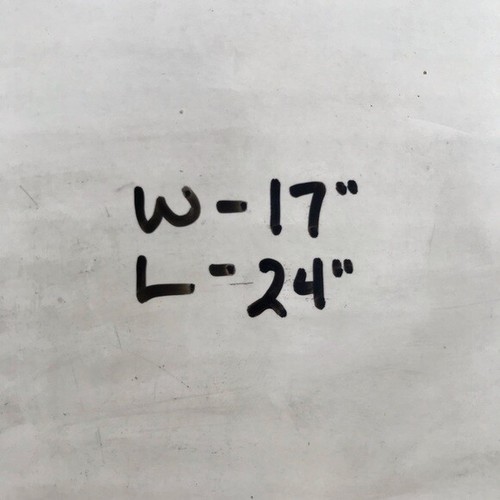 W - 17"
L - 24"